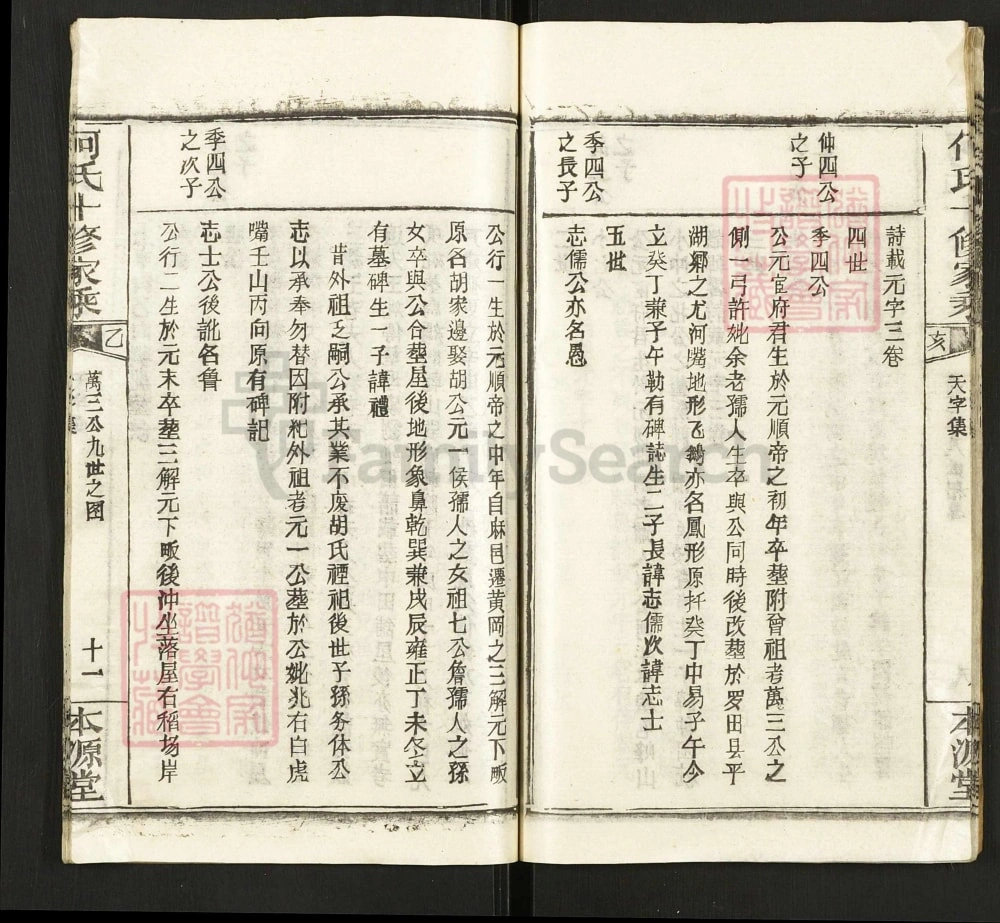 何氏十修家乘
亥
天字集
本源堂
詩載元字三卷
四世
仲四公
之子
季四公
公元宦府君生於元順帝之初年卒塟附曾祖考萬三公之
側一弓許妣余老孺人生卒與公同時後改塟於罗田县平
湖鄉之尤河嘴地形飞鵝亦名鳳形原扦癸丁中易子午今
立癸丁兼子午勒有碑誌生二子長諱志儒次諱志士
五世
季四公
之長子
志儒公亦名愚
公行一生於元順帝之中年自麻邑遷黄岡之三解元下畈
原名胡家邊娶胡公元一侯孺人之女祖七公詹孺人之孫
女卒與公合塟屋後地形象鼻乾巽兼戌辰雍正丁未冬立
有墓碑生一子諱禮
昔外祖乏嗣公承其業不废胡氏禋祀後世子孫务体公
志以承奉勿替因附紀外祖考元一公塟於公妣兆右白虎
嘴壬山丙向原有碑記
季四公
之次子
志士公後訛名魯
公行二生於元末卒塟三解元下畈後沖坐落屋右稻场岸
何氏十修家乘
乙
萬三公九世之图
十一
本源堂
FamilySearch